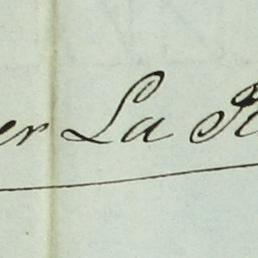 er La